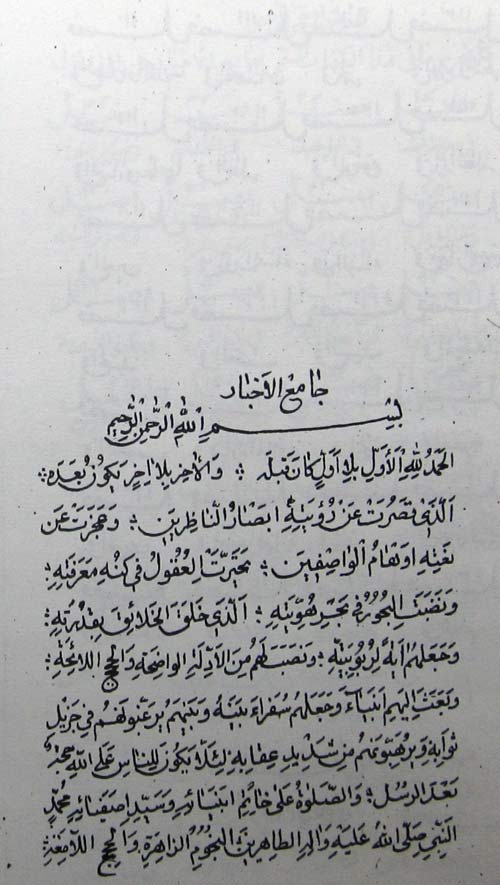 جامع الأخبار
بسم الله الرحمن الرحيم
الحمد لله الأول بلا أول كان قبله والآخر بلا آخر يكون بعده
الذي قصرت عن رؤيته أبصار الناظرين وعجزت عن
نعته أوهام الواصفين تحيرت العقول في كنه معرفته
ونضبت البحور في بحر هويته الذي خلق الخلائق بقدرته
وجعلهم آية لربوبيته ونصب لهم من الأدلة الواضحة والحجج اللائحة
وبعث إليهم أنبياء وجعلهم سفراء بينه وبينهم يرغبونهم في جزيل
ثوابه ويرهبونهم من شديد عقابه لئلا يكون للناس على الله حجة
بعد الرسل والصلوة على خاتم أنبيائه وسيد أصفيائه محمد
النبي صلى الله عليه وآله الطاهرين النجوم الزاهرة والحجج اللامعة